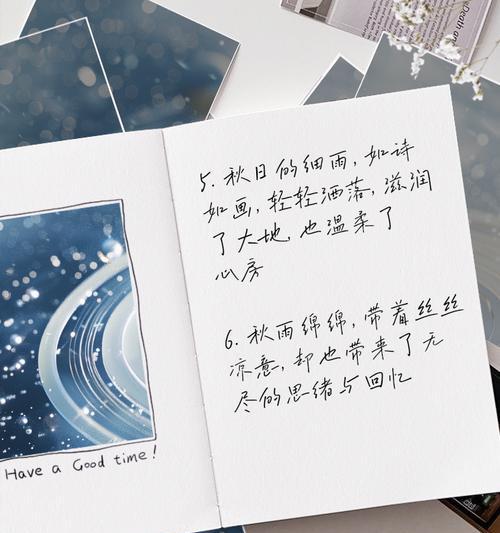 Death an
5. 秋日的细雨，如诗
如画，轻轻洒落，滋润
了大地，也温柔了
心房
6. 秋雨绵绵，带着丝丝
凉意，却也带来了无
尽的思绪与回忆
Have a Good time!